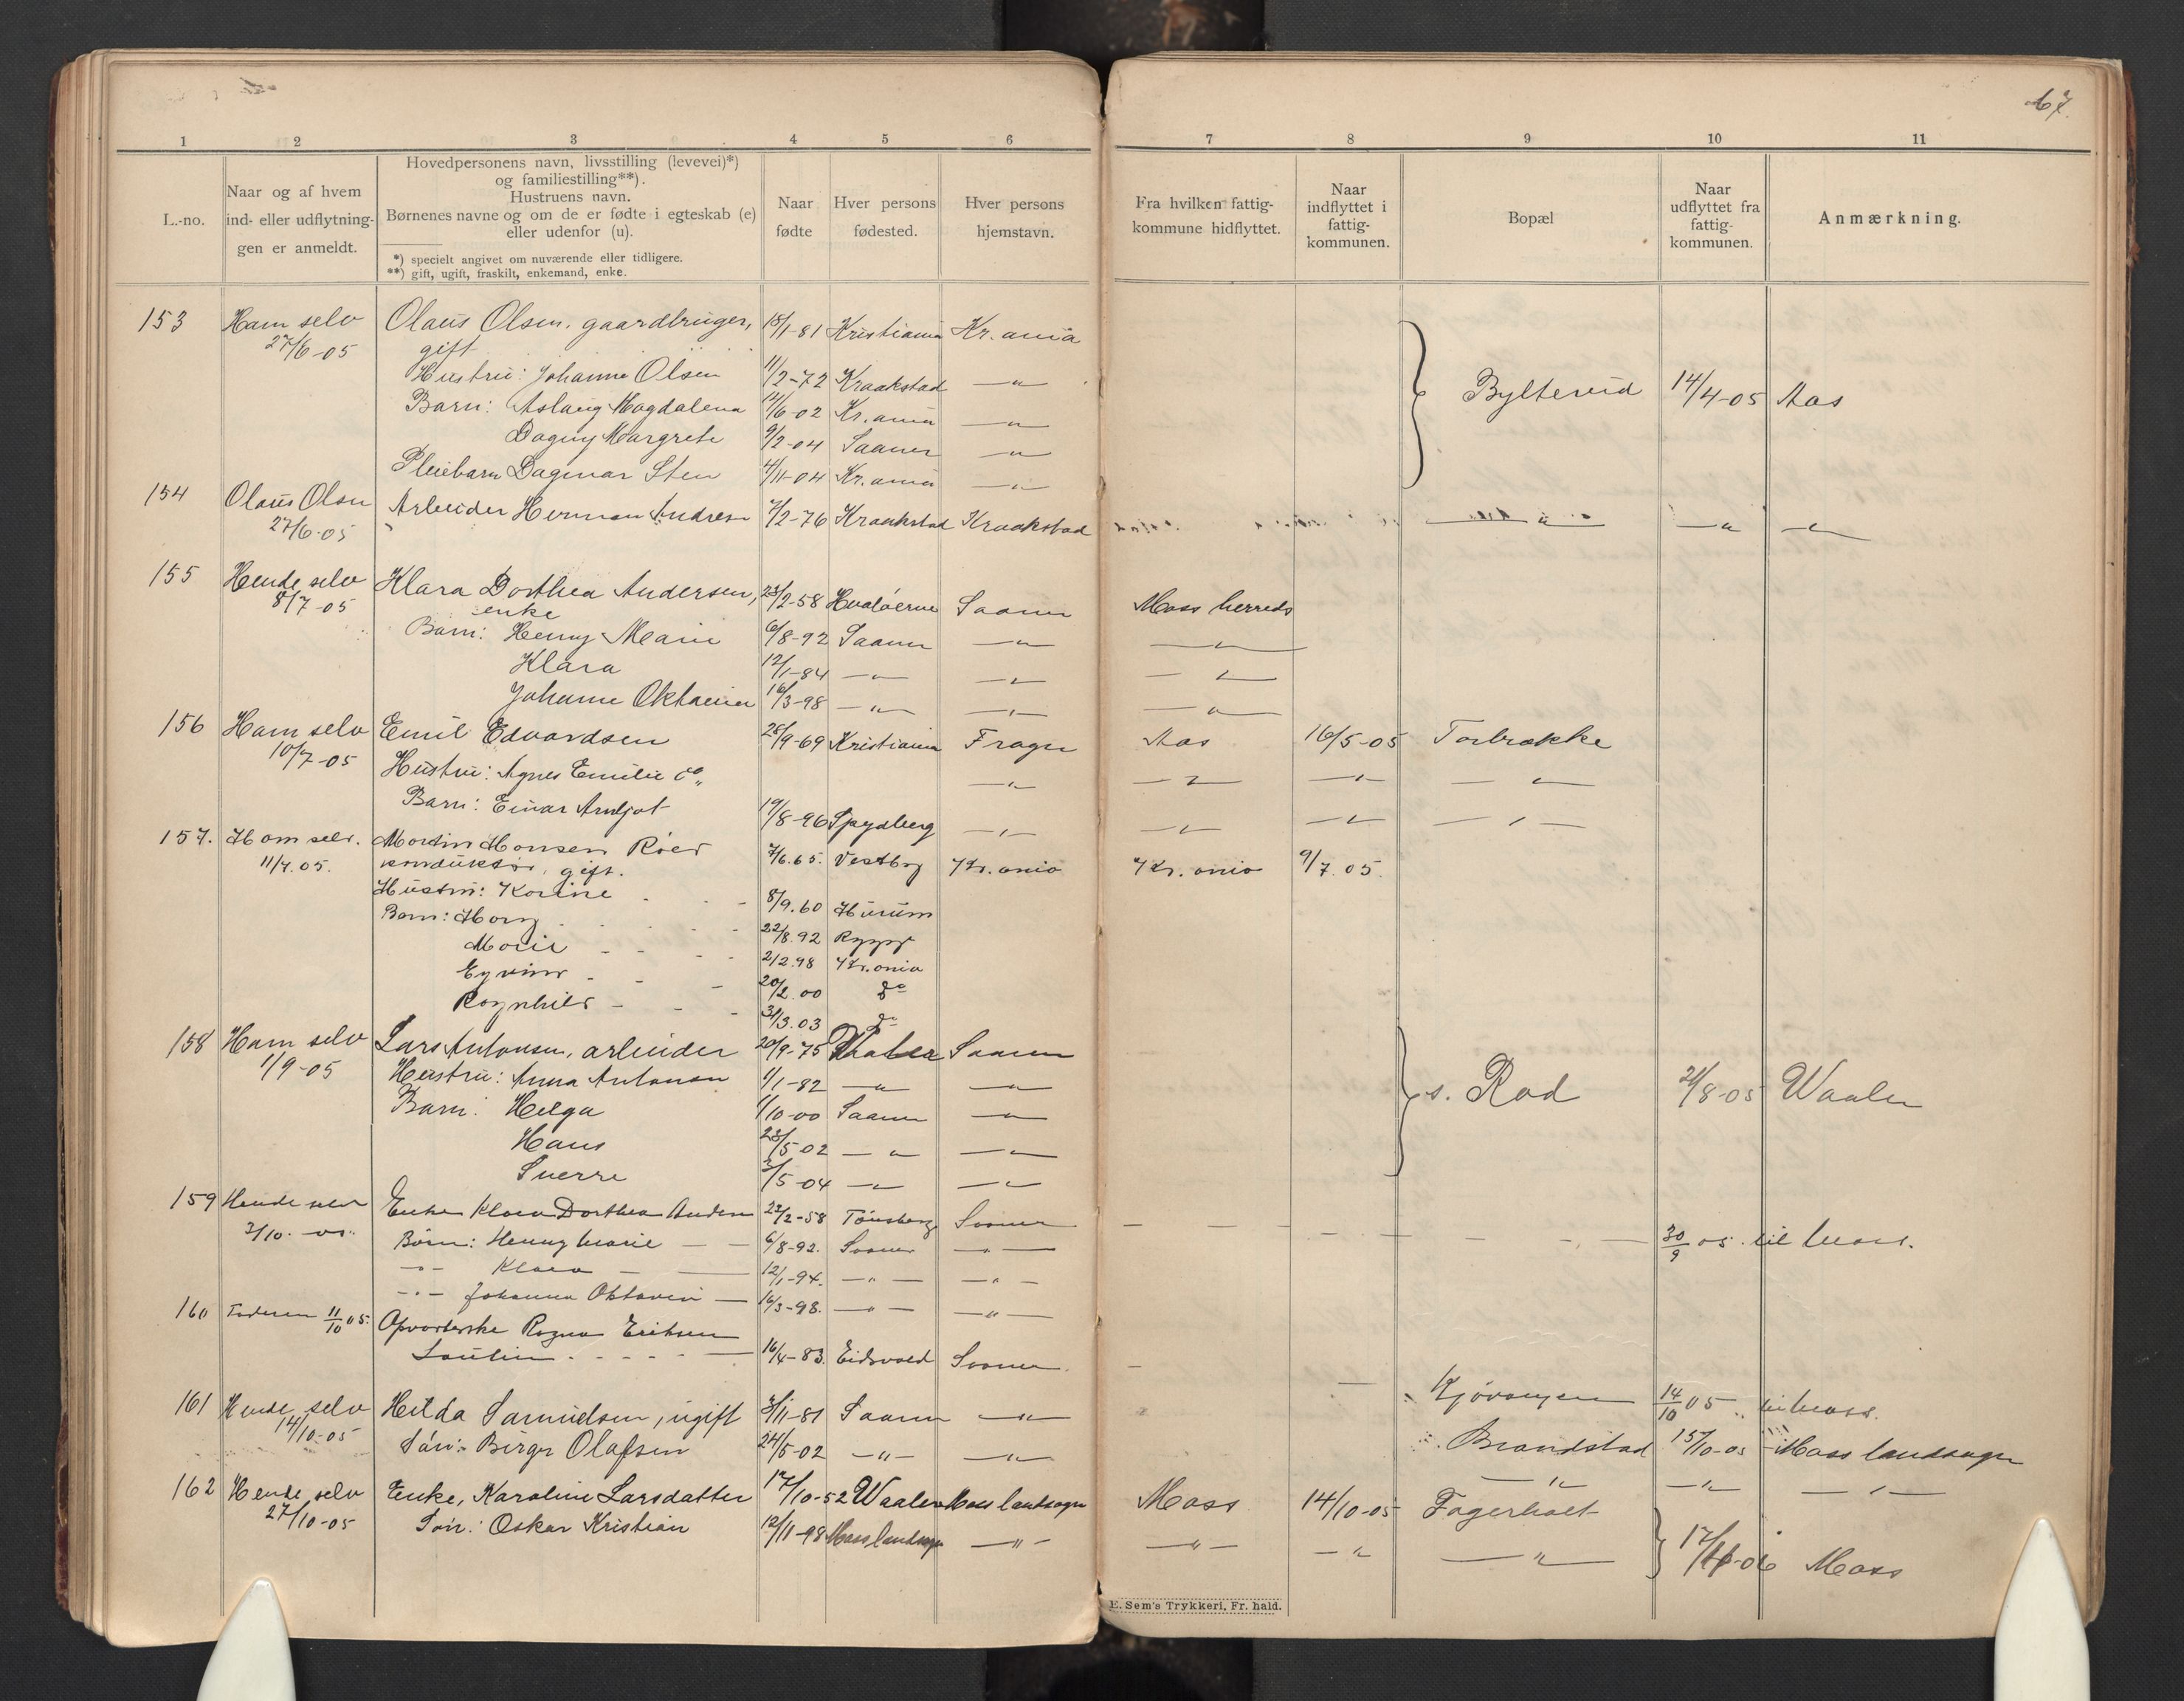 67.
1 2 3 4 5 6 7 8 9 10 11
L.-no.
Naar og af hvem
ind- eller udflytnin-
gen er anmeldt.
Hovedpersonens navn, livsstilling (levevei)*)
og familiestilling**).
Hustruens navn.
Børnenes navne og om de er fødte i egteskab (e)
eller udenfor (u).
*) specielt angivet om nuværende eller tidligere.
**) gift, ugift, fraskilt, enkemand, enke.
Naar
fødte
Hver persons
fødested.
Hver persons
hjemstavn.
Fra hvilken fattig-
kommune hidflyttet.
Naar
indflyttet i
fattig-
kommunen.
Bopæl
Naar
udflyttet fra
fattig-
kommunen.
Anmærkning.
153 Ham selv Olaus Olsen, gaardbruger, 18/1-81 Kristiania Kr.ania
27/6-05 gift
Hustru: Johanne Olsen 11/2-72 Kraakstad —"— Byltevid 14/4-05 Aas
Barn: Aslaug Magdalena 14/6-02 Kr.ania —"—
Dagny Margrete 9/2-04 Saaner —"—
Pleiebarn Dagmar Sten 4/11-04 Kr.ania —"—
154 Olaus Olsen Arbeider Herman Andresen 7/2-76 Kraakstad Kraakstad —"— —"— —"—
27/6-05
155 Hende selv Klara Dorthea Andersen, 23/2-58 Hvaløerne Saaner Moss herreds
8/7-05 enke
Barn: Henny Marie 6/8-92 Saaner —"— —"—
Klara 12/1-84 —"— —"— —"—
Johanne Oktavia 16/3-98 —"— —"— —"—
156 Ham selv Emil Edvardsen 28/9-69 Kristiania Frogn Aas 16/5-05 Torbrække
10/7-05 Hustru: Agnes Emilie do —"— —"— —"— —"—
Barn: Einar Arnljot 19/8-96 Spydberg —"— —"— —"— —"—
157. Ham selv. Martin Hansen Röer 7/6.65. Vestby Kr.ania Kr.ania 9/7.05.
11/7.05. konduktör, gift.
Hustru: Karine 8/9.60 Hurum
Barn: Harry 22/8.92 Rygge
Marie 2/2.98 Kr.ania
Eyvind 20/2.00 do
Ragnhild 31/3.03 do
158 Ham selv Lars Antonsen, arbeider 20/9-75 Vaaler Saaner
1/9-05 Hustru: Anna Antonsen 1/1-82 —"— —"— s. Rød 24/8-05 Waaler
Barn: Helga 1/10-00 Saaner —"—
Hans 23/5-02 —"— —"—
Sverre 2/5-04 —"— —"—
159 Hende selv Enke Klara Dorthea Anders 22/2-58 Tönsberg Saaner
3/10.-05. Börn: Henny Marie 6/8-92. Saaner —"— 30/9 05. til Moss.
—"— Klara 12/1-94. —"— —"—
—"— Johanna Oktavia 16/3-98. —"— —"—
160 11/10 05. Opvarterske Ragna Eriksen
16/4-83. Eidsvold Saaner Kjövangen 14/10 05 til Moss.
161 Hende selv Hilda Samuelsen, ugift 3/11-81 Saaner —"— Brandstad 15/10-05 Moss landsogn
14/10-05 Sön: Birger Olafsen 24/5-02 —"— —"— —"— —"— —"—
162 Hende selv Enke, Karoline Larsdatter 17/10-52 Waaler Moss landsogn Moss 14/10-05 Fagerholt
27/10-05 Sön: Oskar Kristian 12/11-98 Moss landsogn —"— —"— —"— —"— Moss
E. Sem's Trykkeri, Fr.hald.